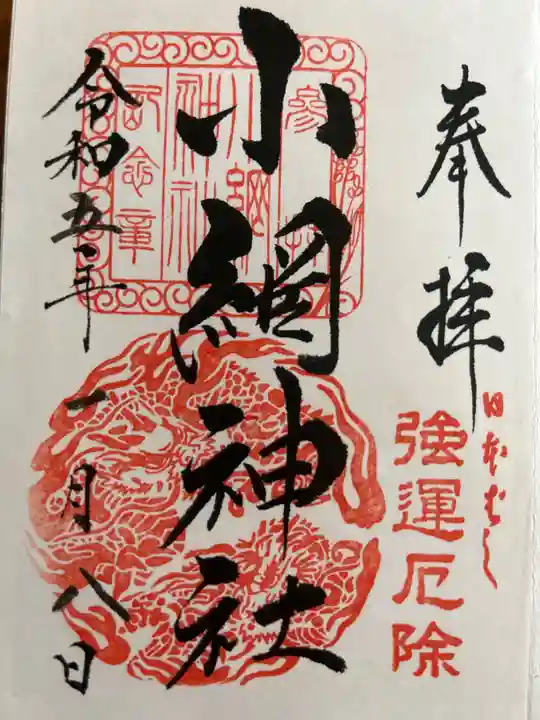 奉拝
日本ばし
強運厄除
小網神社
参拝
小網神社
記念章
令和五年一月八日